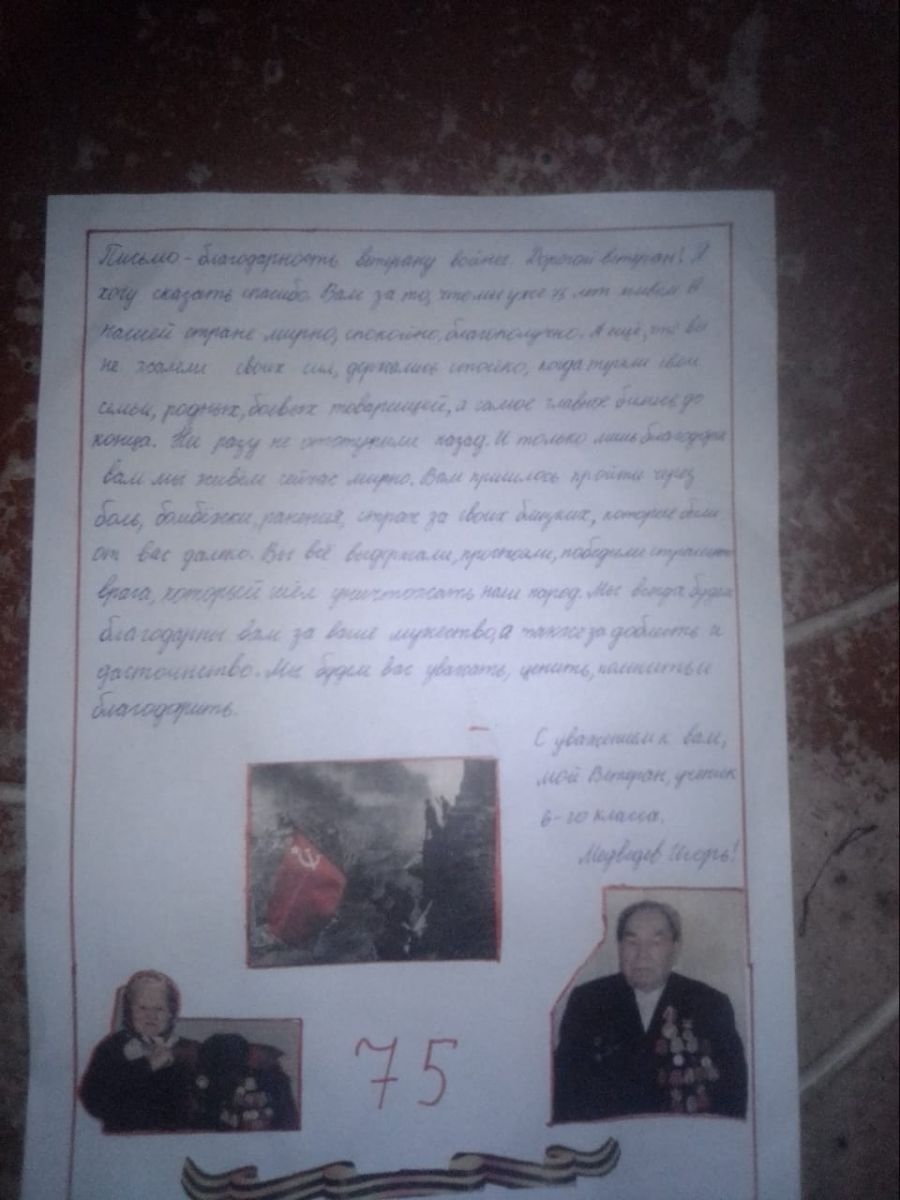 Письмо-благодарность ветерану войны. Дорогой ветеран! Я
хочу сказать спасибо Вам за то, что мы уже 75 лет живём в
нашей стране мирно, спокойно, благополучно. А ещё, что вы
не жалели своих сил, держались стойко, когда теряли свои
семьи, родных, боевых товарищей, а самое главное бились до
конца. Ни разу не отступили назад. И только лишь благодаря
вам мы живём сейчас мирно. Вам пришлось пройти через
боль, бомбёжки, ранения, страх за своих близких, которые были
от вас далеко. Вы всё выдержали, прожили, победили
врага, который шёл уничтожать наш народ. Мы всегда будем
благодарны вам за ваше мужество, а также за доблесть и
достоинство. Мы будем вас уважать, ценить, помнить и
благодарить.
С уважением к вам,
мой Ветеран, ученик
6-го класса.
Медведев Игорь!
75